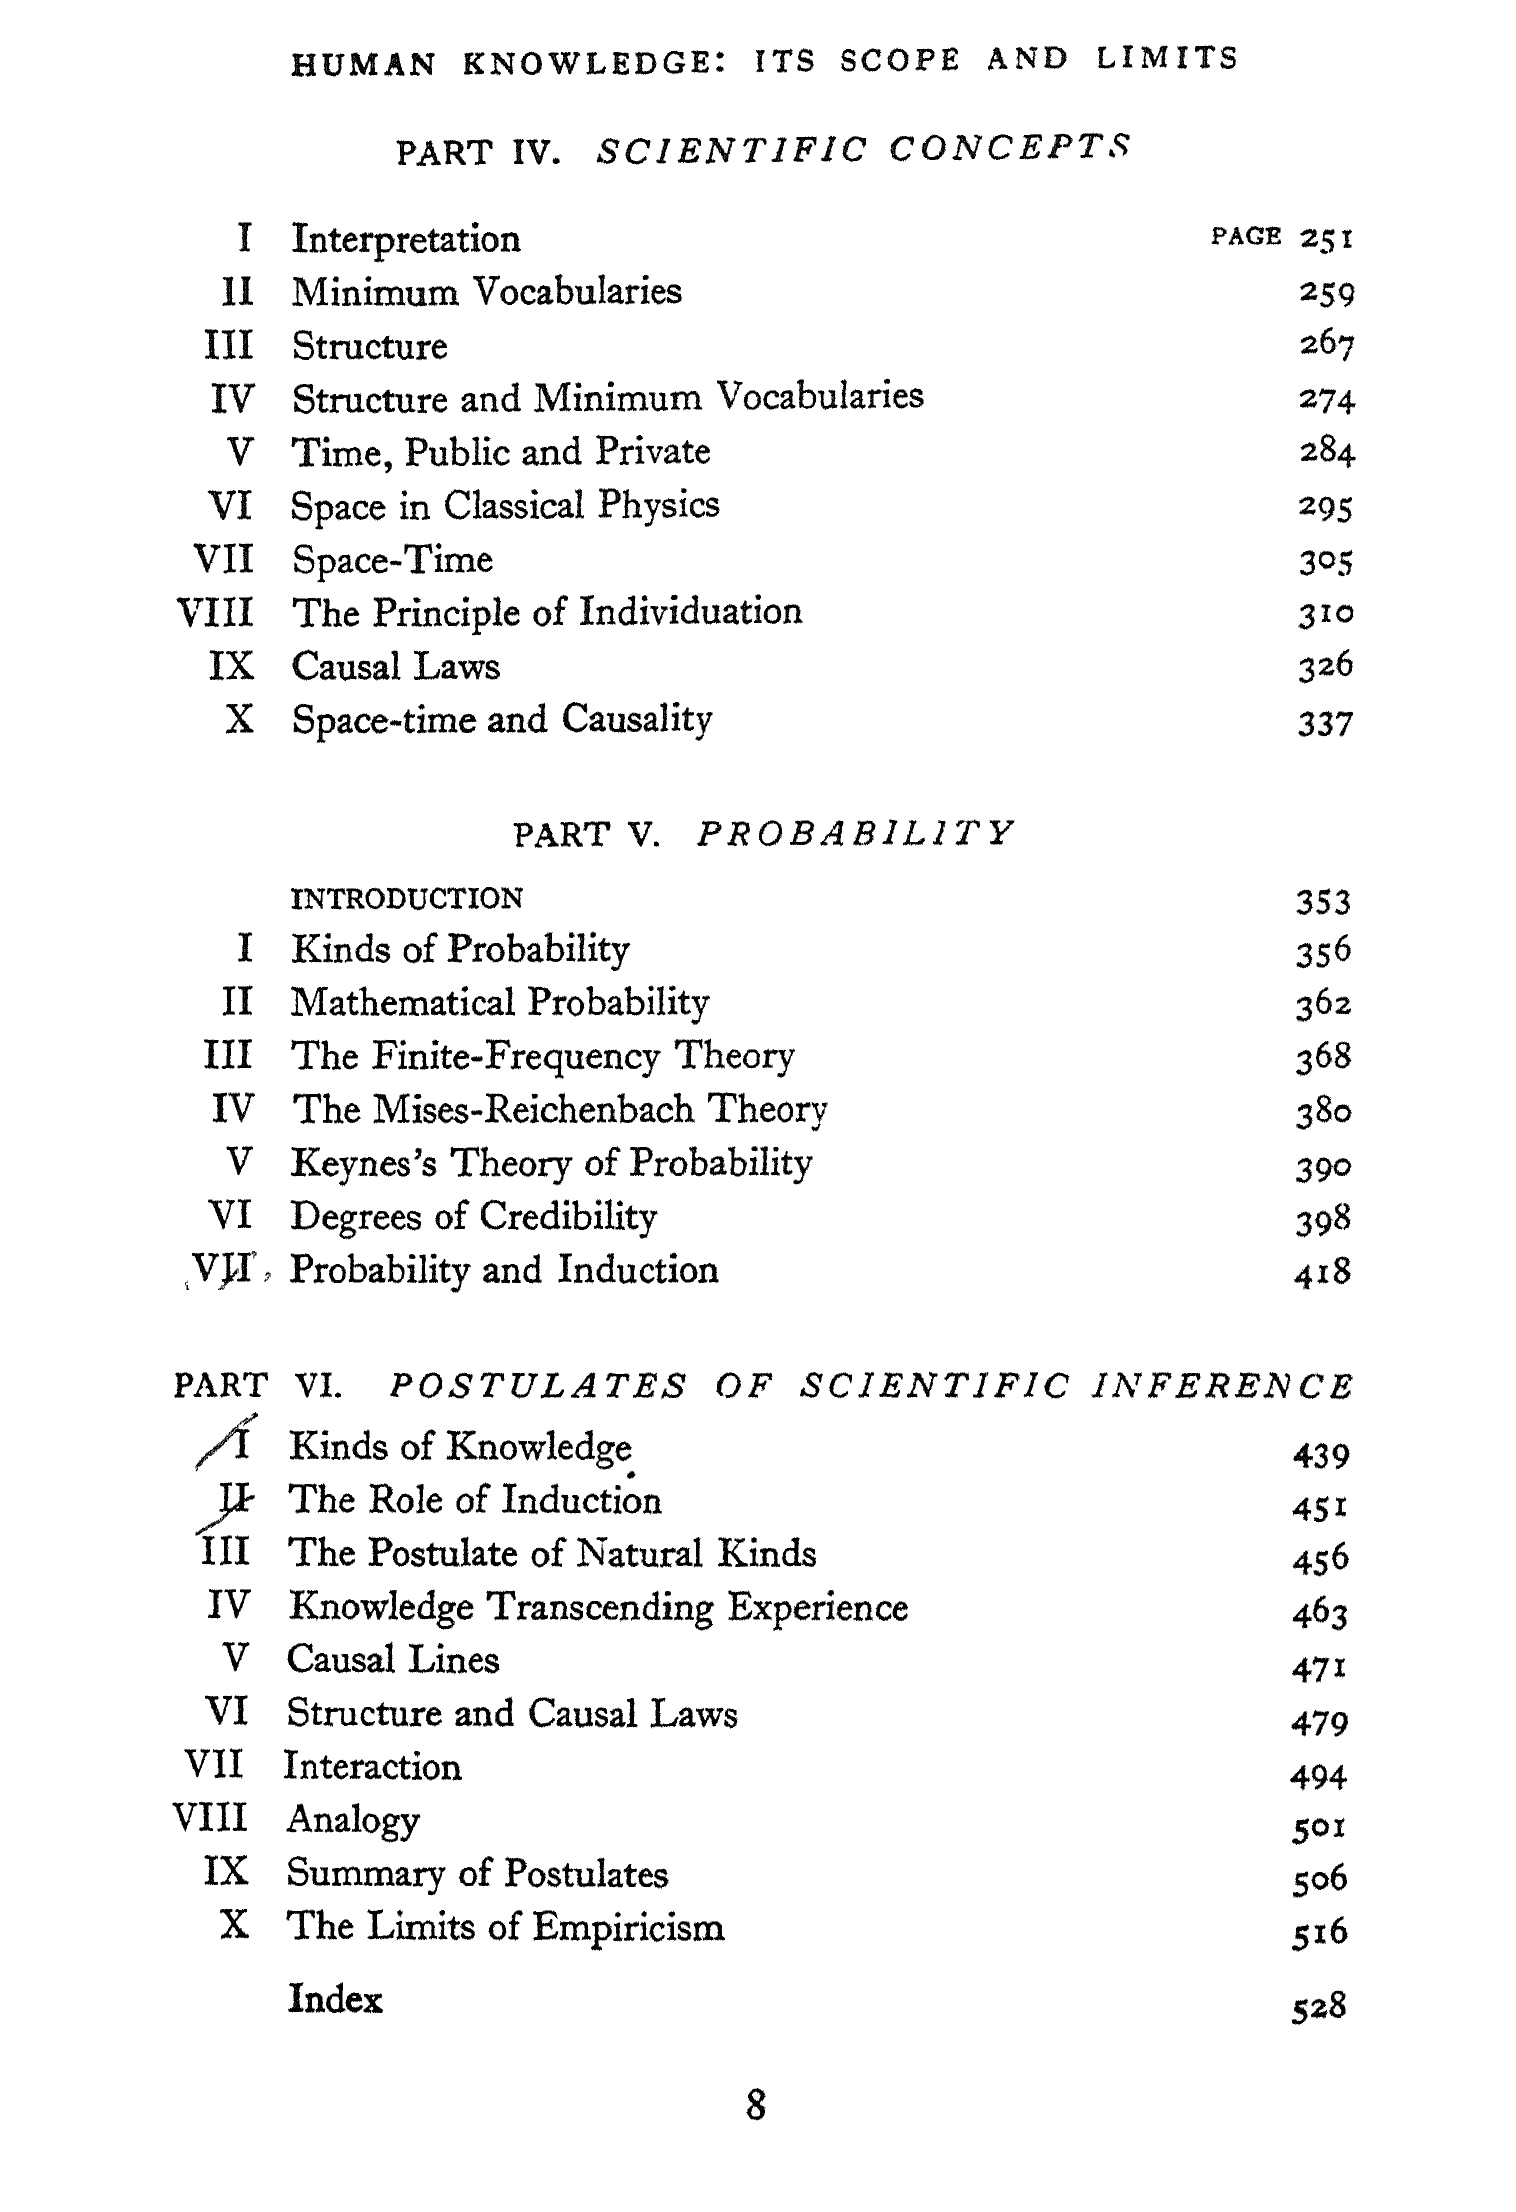 HUMAN KNOWLEDGE: ITS SCOPE AND LIMITS
PART IV. SCIENTIFIC CONCEPTS
I Interpretation PAGE 251
II Minimum Vocabularies 259
III Structure 267
IV Structure and Minimum Vocabularies 274
V Time, Public and Private 284
VI Space in Classical Physics 295
VII Space-Time 305
VIII The Principle of Individuation 310
IX Causal Laws 326
X Space-time and Causality 337
PART V. PROBABILITY
INTRODUCTION 353
I Kinds of Probability 356
II Mathematical Probability 362
III The Finite-Frequency Theory 368
IV The Mises-Reichenbach Theory 380
V Keynes's Theory of Probability 390
VI Degrees of Credibility 398
VII Probability and Induction 418
PART VI. POSTULATES OF SCIENTIFIC INFERENCE
I Kinds of Knowledge 439
II The Role of Induction 451
III The Postulate of Natural Kinds 456
IV Knowledge Transcending Experience 463
V Causal Lines 471
VI Structure and Causal Laws 479
VII Interaction 494
VIII Analogy 501
IX Summary of Postulates 506
X The Limits of Empiricism 516
Index 528
8